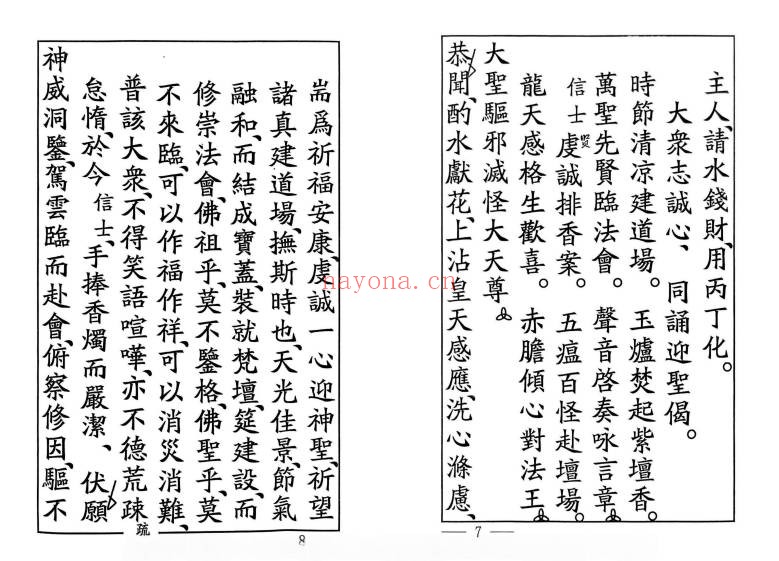 主人、請水錢財、用丙丁化。
大衆志誠心、同誦迎聖偈。
時節清凉建道場。玉爐焚起紫壇香。
萬聖先賢臨法會。聲音啓奏咏言章。
信士虔誠排香案。五瘟百怪赴壇場。
龍天感格生歡喜。赤膽傾心對法王。
大聖驅邪滅怪大天尊
恭聞、酌水獻花、上沾皇天感應、洗心滌慮、
7
耑爲祈福安康、虔誠一心迎神聖、祈望
諸真建道場、撫斯時也、天光佳景、節氣
融和、而結成寶蓋、裝就梵壇、筵建設、而
修崇法會、佛祖乎、莫不鑒格、佛聖乎、莫
不來臨、可以作福作祥、可以消災消難、
普該大衆、不得笑語喧嘩、亦不德荒疎
怠惰、於今信士、手捧香燭而嚴潔、伏願
神威洞鑒、駕雲臨而赴會、俯察修因、驅不
疏
8
nayona.cn